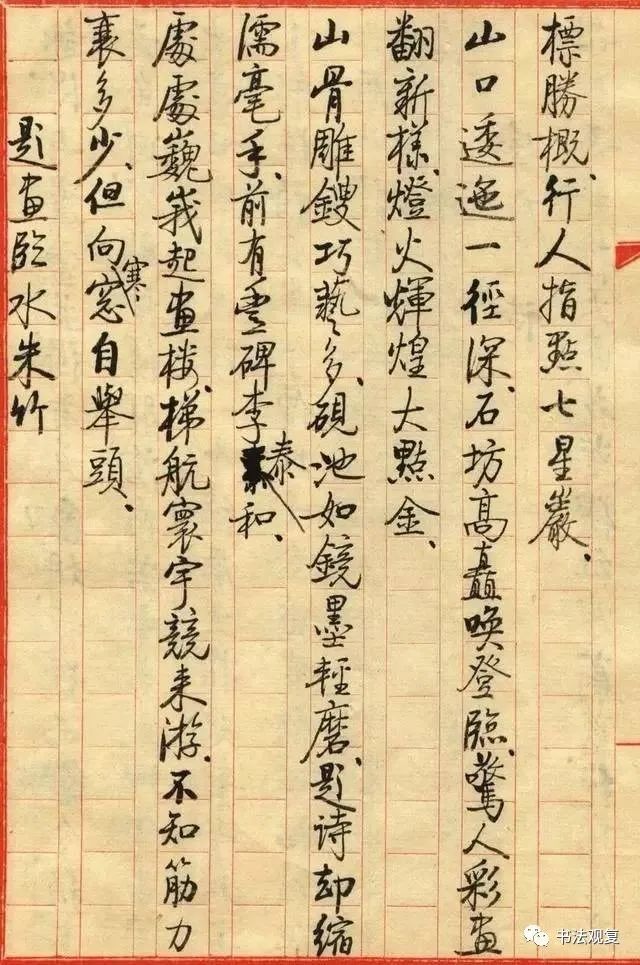 標勝概、行人指點七星巖、
山口逶迤一徑深、石坊高矗喚登臨、驚人彩畫
翻新樣、燈火輝煌大點金、
山骨雕鎪巧藝多、硯池如鏡墨輕磨、題诗却縮
濡毫手、前有豐碑李泰和、
處處巍峩起畫楼、梯航寰宇競来游、不知筋力
衰多少、但向寒窓自舉頭、
題畫臨水朱竹
书法观复